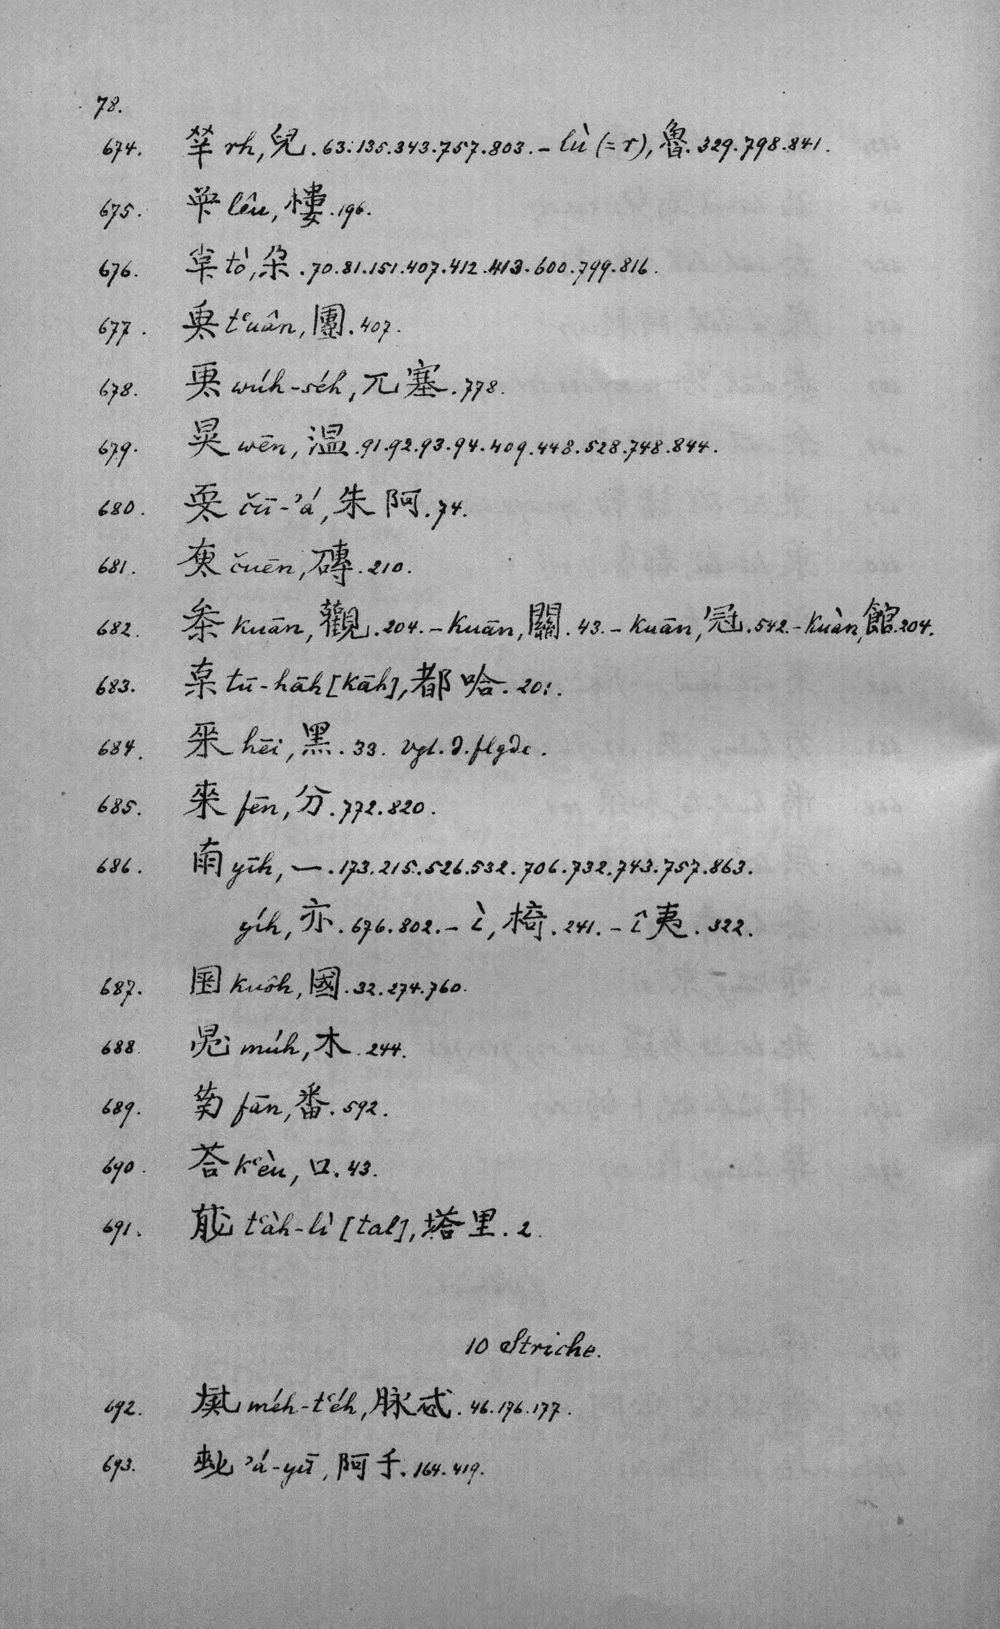 78.
674. rh, 兒. 63. 135. 343. 757. 803. - lù (= r), 魯. 329. 798. 841.
675. lêu, 樓. 196.
676. tò, 朶. 70. 81. 151. 407. 412. 413. 600. 799. 816.
677. tʽuân, 團. 407.
678. wúh-séh, 兀塞. 778.
679. wēn, 温. 91. 92. 93. 94. 409. 448. 528. 748. 844.
680. čū-ʾá, 朱阿. 74.
681. čuēn, 磚. 210.
682. kuān, 觀. 204. - kuān, 關. 43. - kuān, 冠. 542. - kuàn, 館. 204.
683. tū-hāh [kāh], 都哈. 201.
684. hēi, 黑. 33. vgl. d. flgde.
685. fēn, 分. 772. 820.
686. yīh, 一. 173. 215. 526. 532. 706. 732. 743. 757. 863.
yíh, 亦. 676. 802. - ì, 椅. 241. - î 夷. 322.
687. kuôh, 國. 32. 274. 760.
688. múh, 木. 244.
689. fān, 番. 592.
690. kʽèu, 口. 43.
691. tʽàh-lì [tal], 塔里. 2.
10 Striche.
692. méh-tʽéh, 脉忒. 46. 176. 177.
693. ʾá-yū, 阿于. 164. 419.